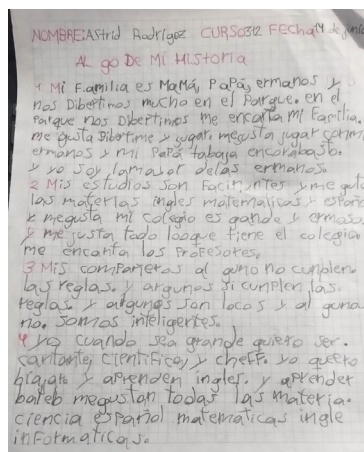 NOMBRE: Astrid Rodrigez CURSO 312 Fecha 14 de junio
AL go De Mi HistoriA
1 Mi Familia es MaMá, PaPá, ermanos y
nos Dibertimos mucho en el Parque. en el
Parque nos Dibertimos me encanta mi Familia.
me gusta Dibertirme y jugar. megusta jugar con mi
ermanos y mi Papá tabaja encorabasto.
y yo soy lamallor delas ermanos.
2 Mis estudios son Facinntes y me guta
las materias ingles matematicas y español
y megusta mi colegio es gande y ermoso
y me justa todo loque tiene el colegio
me encanta los Profesores.
3 Mis comPañeros al guno no cunplen
las reglas. y argunos si cunplen las.
reglas. y argunos son locos y al guno
no. Somos inteligentes.
4 yo cuando sea grande quiero ser.
cantante, cientifica, y cheff. yo quero
biajar y aprenden ingles. y aprender
baleb megustan todas las materia.
ciencia español matematicas ingle
informaticas.